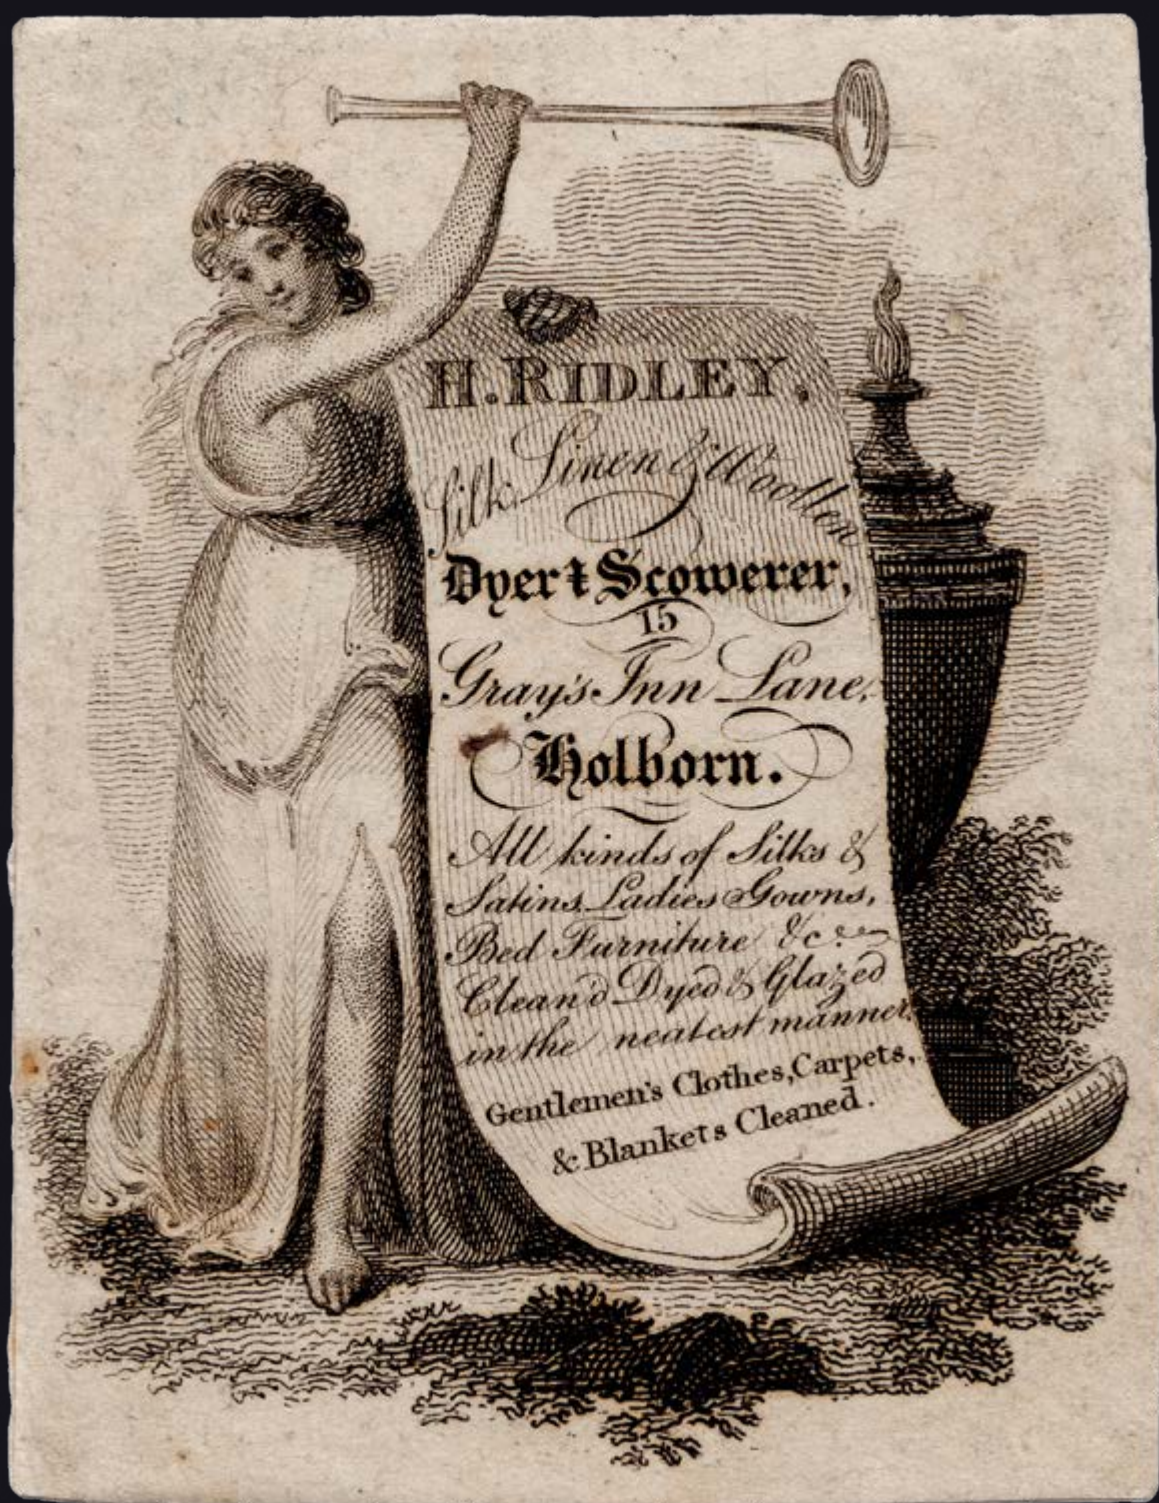 H. RIDLEY,
Silk, Linen & Woollen
Dyer & Scowerer,
15
Gray's Inn Lane,
Holborn.
All kinds of Silks &
Satins, Ladies Gowns,
Bed Furniture &c.
Clean'd Dyed & Glazed
in the neatest manner
Gentlemen's Clothes, Carpets,
& Blankets Cleaned.